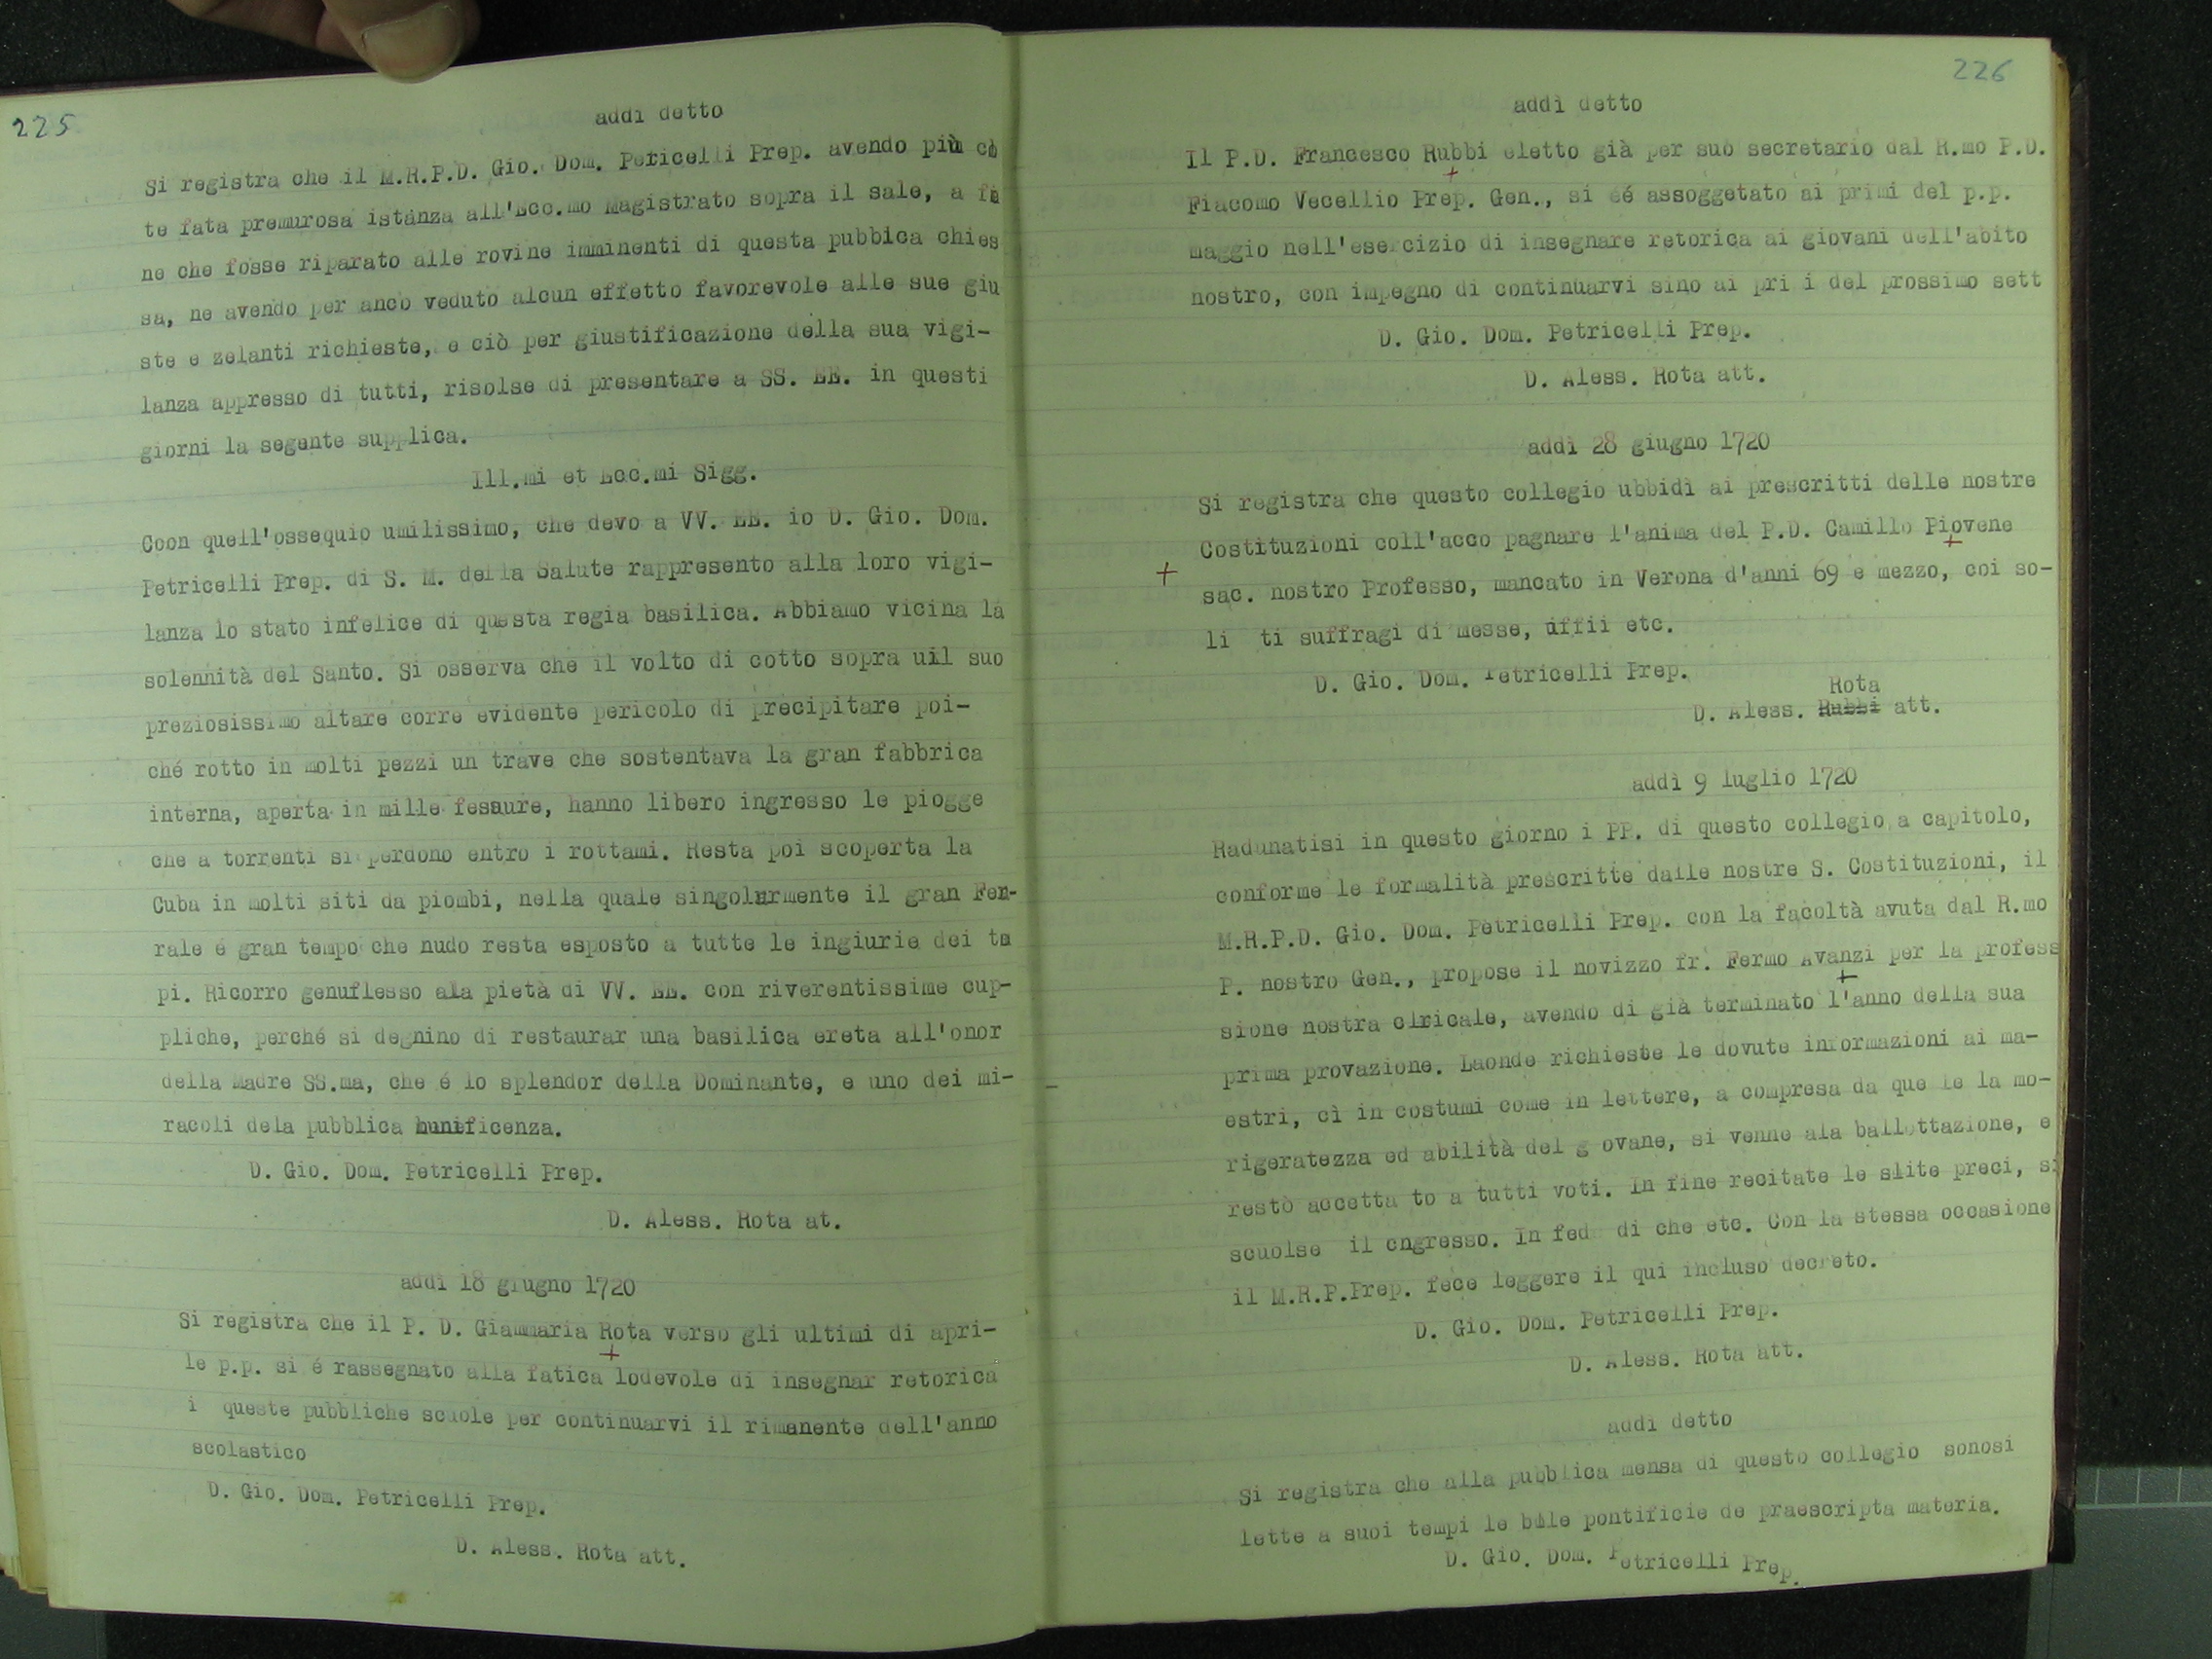 225
addì detto
Si registra che il M.R.P.D. Gio. Dom. Petricelli Prep. avendo più
te fata premurosa istanza all'Ecc.mo Magistrato sopra il sale, a
ne che fosse riparato alle rovine imminenti di questa pubbica chies
sa, ne avendo per anco veduto alcun effetto favorevole alle sue giu
ste e zelanti richieste, e ciò per giustificazione della sua vigi-
lanza appresso di tutti, risolse di presentare a SS. EE. in questi
giorni la segente supplica.
Ill.mi et Ecc.mi Sigg.
Coon quell'ossequio umilissimo, che devo a VV. EE. io D. Gio. Dom.
Petricelli Prep. di S. M. della Salute rappresento alla loro vigi-
lanza lo stato infelice di questa regia basilica. Abbiamo vicina la
solennità del Santo. Si osserva che il volto di cotto sopra uil suo
preziosissimo altare corre evidente pericolo di precipitare poi-
ché rotto in molti pezzi un trave che sostentava la gran fabbrica
interna, aperta in mille fessure, hanno libero ingresso le piogge
che a torrenti si perdono entro i rottami. Resta poi scoperta la
Cuba in molti siti da piombi, nella quale singolarmente il gran Fer-
rale é gran tempo che nudo resta esposto a tutte le ingiurie dei te
pi. Ricorro genuflesso ala pietà di VV. EE. con riverentissime cup-
pliche, perché si degnino di restaurar una basilica ereta all'onor
della Madre SS.ma, che é lo splendor della Dominante, e uno dei mi-
racoli dela pubblica munificenza.
D. Gio. Dom. Petricelli Prep.
D. Aless. Rota at.
addì 18 giugno 1720
Si registra che il P. D. Giammaria Rota verso gli ultimi di apri-
+
le p.p. si é rassegnato alla fatica lodevole di insegnar retorica
i queste pubbliche scuole per continuarvi il rimanente dell'anno
scolastico
D. Gio. Dom. Petricelli Prep.
D. Aless. Rota att.
226
addì detto
Il P.D. Francesco Rubbi eletto già per suo secretario dal R.mo P.D.
+
Fiacomo Vecellio Prep. Gen., si eé assoggetato ai primi del p.p.
maggio nell'esercizio di insegnare retorica ai giovani dell'abito
nostro, con impegno di continuarvi sino ai pri i del prossimo sett
D. Gio. Dom. Petricelli Prep.
D. Aless. Rota att.
addì 28 giugno 1720
Si registra che questo collegio ubbidì ai prescritti delle nostre
Costituzioni coll'acco pagnare l'anima del P.D. Camillo Piovene
+
+ sac. nostro Professo, mancato in Verona d'anni 69 e mezzo, coi so-
li ti suffragi di messe, uffii etc.
D. Gio. Dom. Petricelli Prep.
Rota
D. Aless. Rubbi att.
addì 9 luglio 1720
Radunatisi in questo giorno i PP. di questo collegio a capitolo,
conforme le formalità prescritte dalle nostre S. Costituzioni, il
M.R.P.D. Gio. Dom. Petricelli Prep. con la facoltà avuta dal R.mo
P. nostro Gen., propose il novizzo fr. Fermo Avanzi per la profess
+
sione nostra clricale, avendo di già terminato l'anno della sua
prima provazione. Laonde richieste le dovute informazioni ai ma-
estri, cì in costumi come in lettere, a compresa da que le la mo-
rigeratezza ed abilità del g ovane, si venne ala ballottazione, e
restò accetta to a tutti voti. In fine recitate le slite preci, si
scuolse il cngresso. In fed di che etc. Con la stessa occasione
il M.R.P.Prep. fece leggere il qui incluso decreto.
D. Gio. Dom. Petricelli Prep.
D. Aless. Rota att.
addì detto
Si registra che alla pubblica mensa di questo collegio sonosi
lette a suoi tempi le bule pontificie de praescripta materia.
D. Gio. Dom. Petricelli Prep.